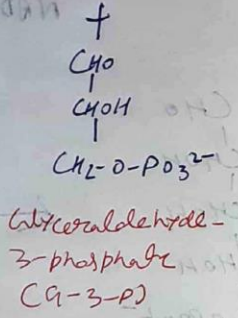 +
CHO
CHOH
CH2-O-PO3^2-
Glyceraldehyde-
3-phosphate
(G-3-P)